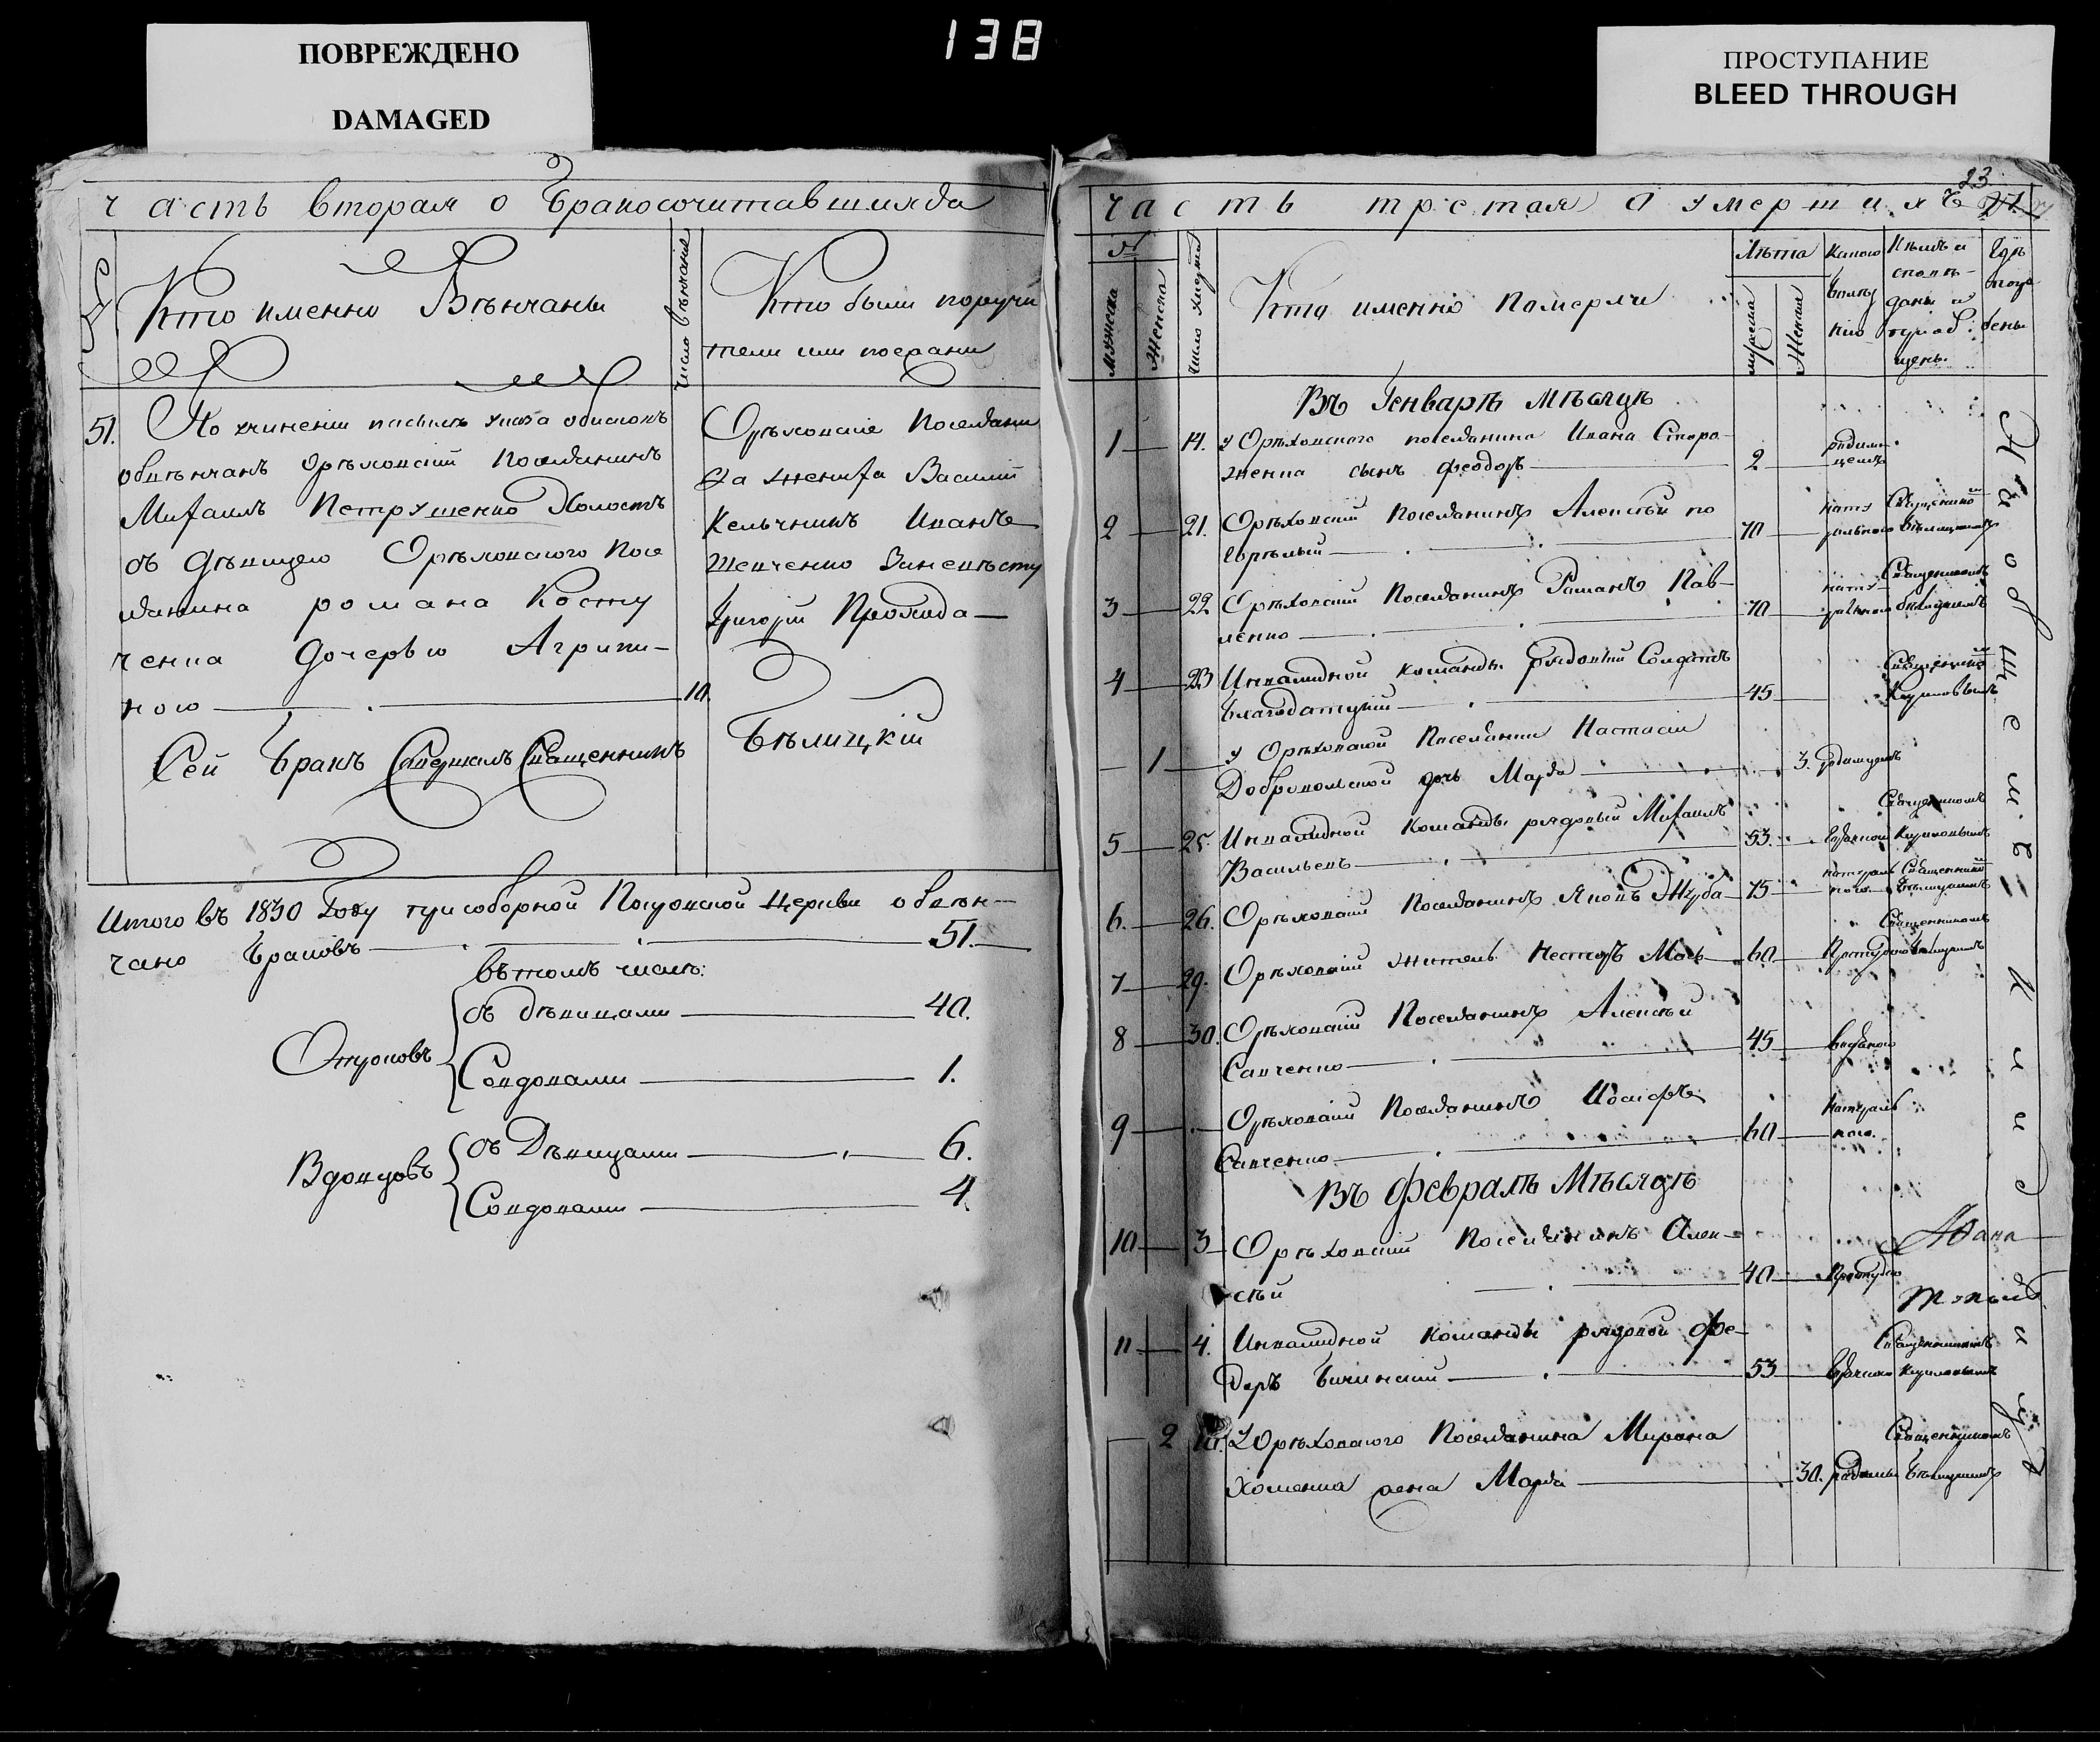 ПОВРЕЖДЕНО
DAMAGED
138
ПРОСТУПАНИЕ
BLEED THROUGH
часть вторая о бракосочитавшихся
Кто именно Вѣнчаны
число вѣнчания
Кто были поручи
тели или поезжани
51. По учинении
обвѣнчанъ орѣховский Поселянинъ
Михаилъ Петрушенко Холостъ
съ дѣвицею Орѣховского Посе
лянина романа Косту
ченка дочерью Агрипи-
ною 10.
Сей бракъ Свершилъ Священникъ
Орѣховские Поселяни
За жениха Василий
Кельчникъ Иванъ
Шевченко За невѣсту
Григорий
Бѣлицкий
Итого въ 1830 Году при соборной Покровской Церкви обвѣн-
чано браковъ 51.
въ томъ числѣ:
Отроковъ
съ дѣвицами 40.
Со вдовами 1.
Вдовцовъ
съ Дѣвицами 6.
Со вдовами 4.
23
часть третая о умершихъ
№
мужеска
Женска
число умертв
Кто именно Померли
Лѣта
мужска
Женска
Какою
болѣз
нию
Кѣмъ и
сповѣ-
даны и
приоб:
щены.
Гдѣ
погре
бены
Въ Генварѣ мѣсяцѣ
1 14. у Орѣховского поселянина Ивана Сторо-
женка сынъ Феодоръ 2 родим-
цемъ
2 21. Орѣховский Поселянинъ Алексѣй по
горѣлый 70 нату
рального Священно
Бѣлицкимъ
3 22 Орѣховский Поселянинъ Романъ Пав-
ленко 70 нату-
рально Священникомъ
Бѣлицкимъ
4 23 Инвалидной команды рядовый Солдатъ
Благодатский 45 Священно
Кириловымъ
1 у Орѣховской Поселянки Настасии
Добровольской дочь Марфа 3. родимцемъ
5 25. Инвалидной Команды рядовый Михаилъ
Васильевъ 53. горячкою Священникомъ
Кириловымъ
6. 26. Орѣховский Поселянинъ Яковъ Жуба 75 натураль
ною. Священнико
Бѣлицкимъ
7 29. Орѣховский житель Несторъ Мось 60 Простудою Священникомъ
Бѣлицкимъ
8 30. Орѣховский Поселянинъ Алексѣй
Савченко 45
9 Орѣховский Поселянинъ Иосифъ
Савченко 60 натураль
ною.
На общемъ кладбищѣ
Въ Февралѣ Мѣсяцѣ
10 3 Орѣховский Поселянинъ Алек-
сѣй 40 Простудою
11 4. Инвалидной команды рядовой Фе-
доръ Бичинский 53 горячкою Священникомъ
Кириловымъ
2 У Орѣховского Поселянина Мирона
Хоменка жена Марфа 30. родами Священникомъ
Бѣлицкимъ